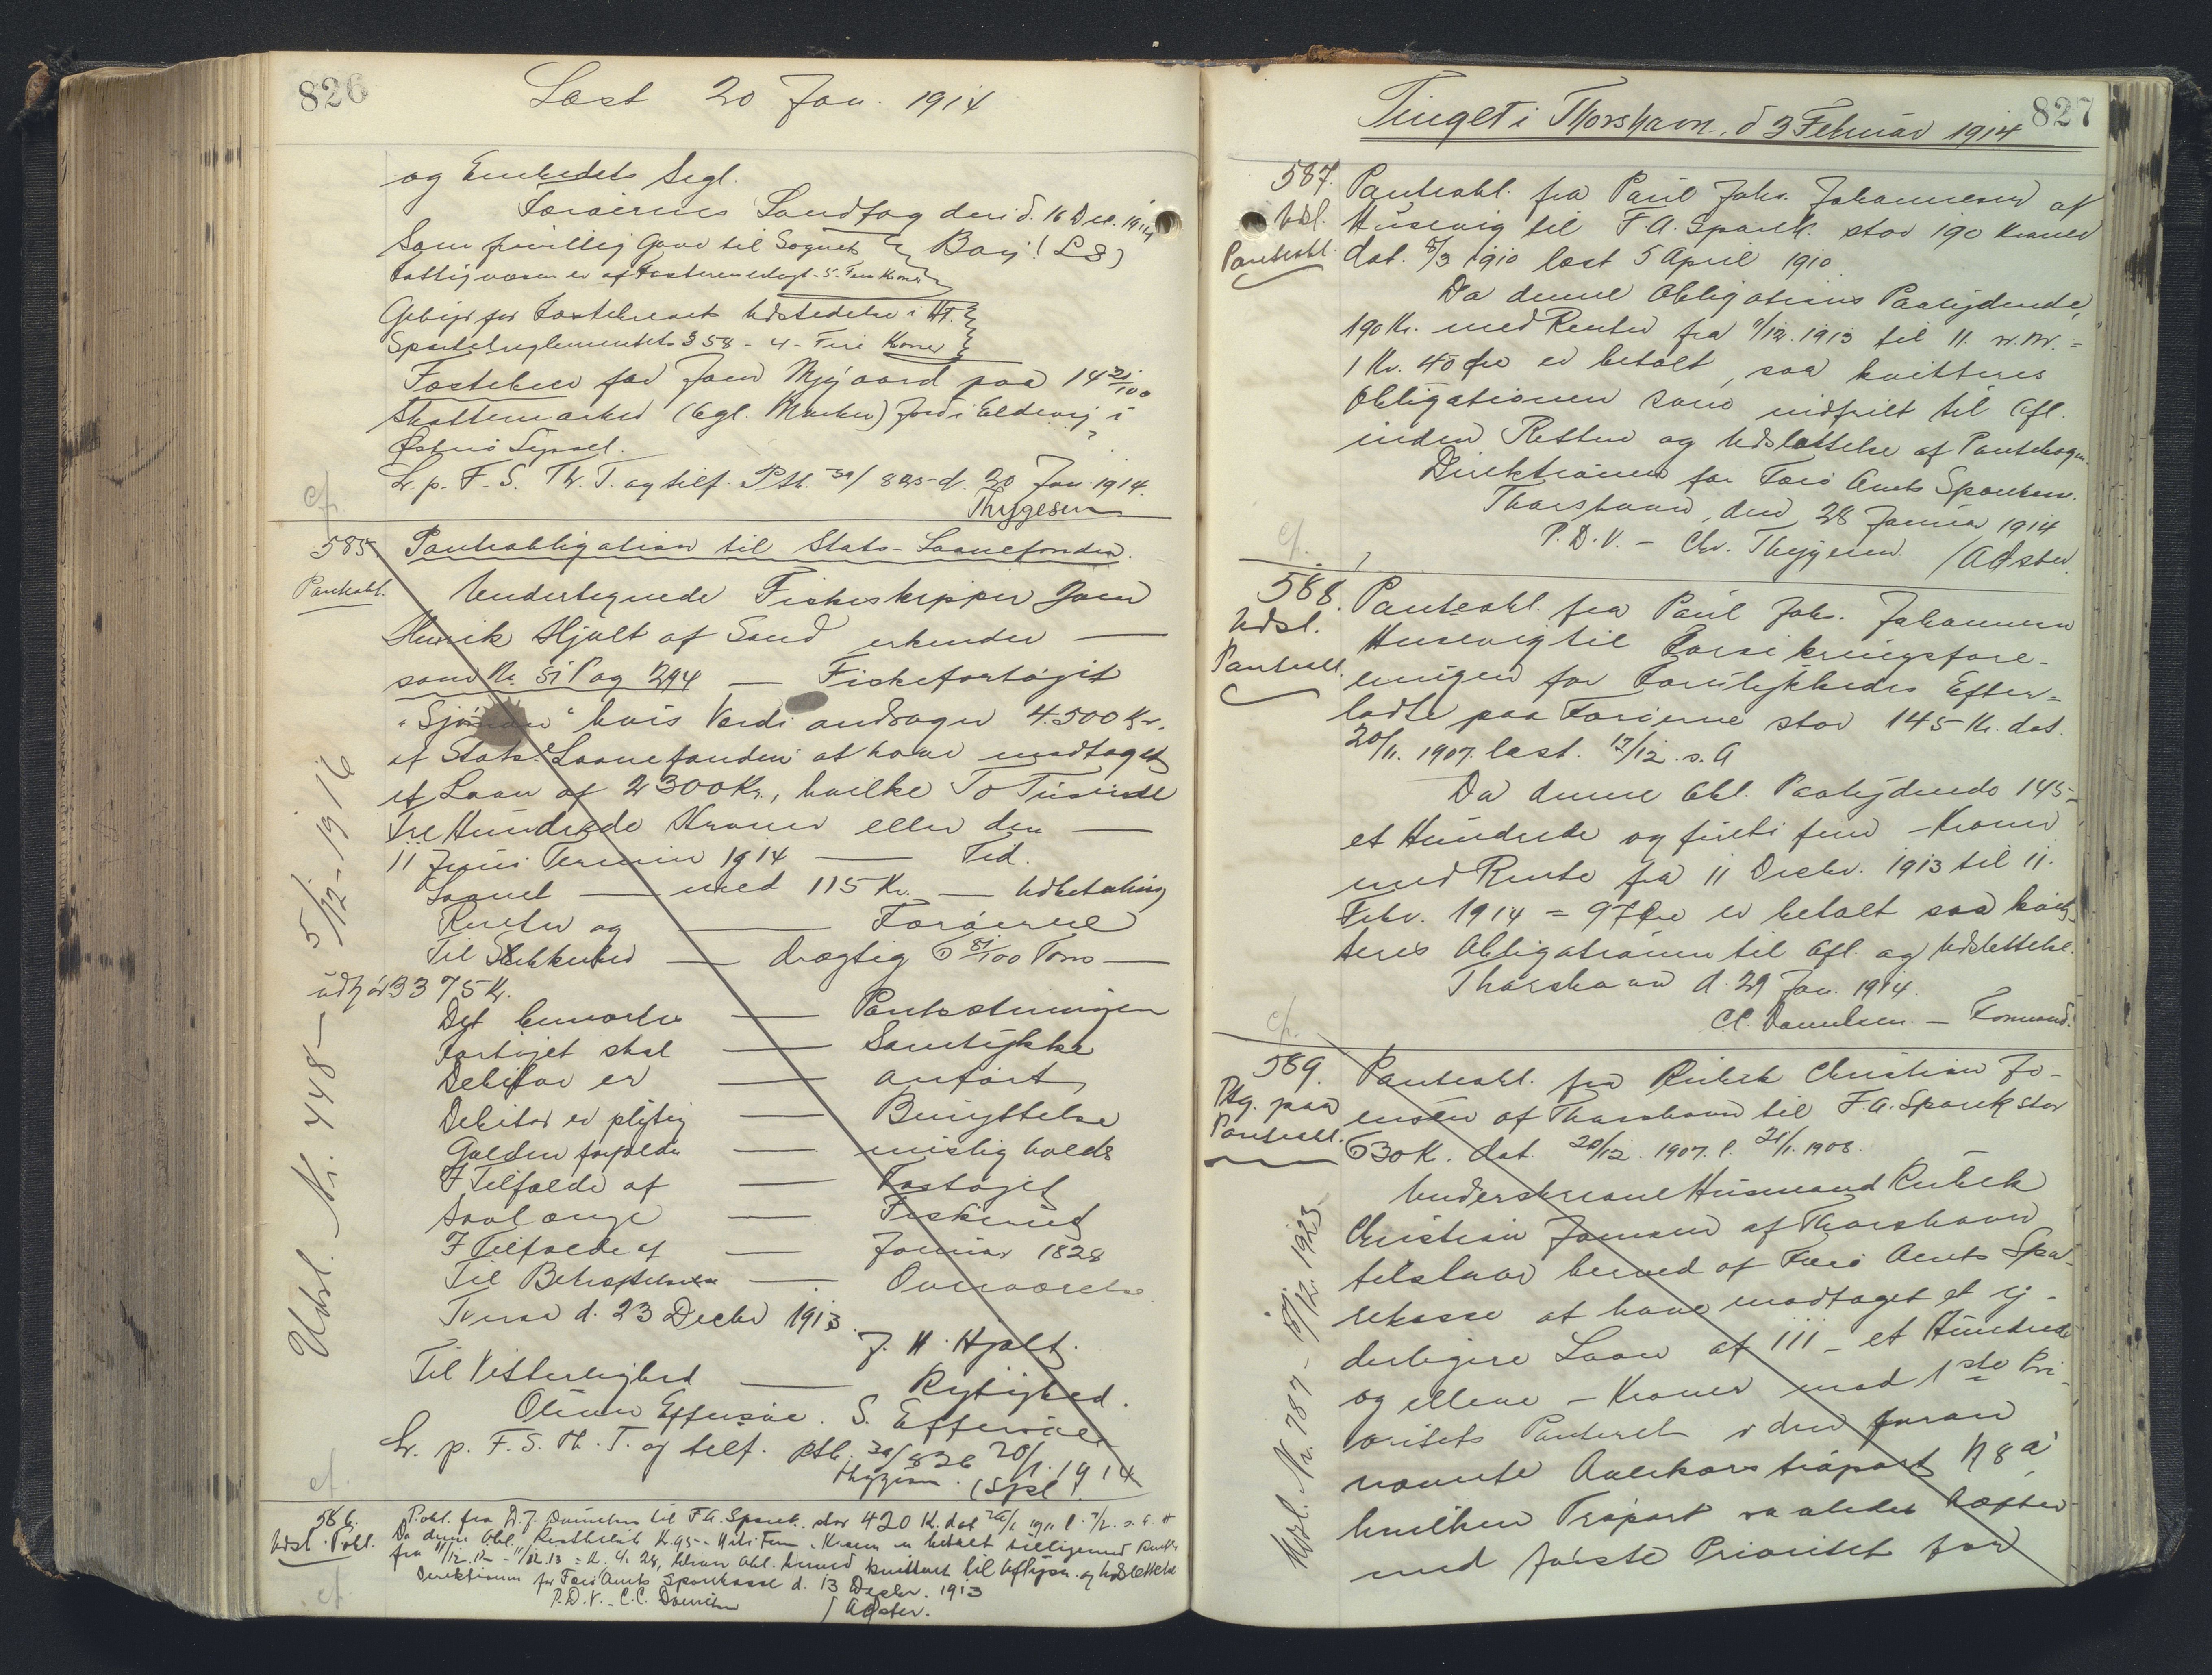 826
Læst 20 Jan. 1914
og Embedets Segl.
Færøernes Landfog deri d. 16 Dec. 1914
Som frivillig Gave til Sognets Bærj! (LS)
Fattigvæsen er af Fæsteren erlagt - 5 - Fem Kroner
Gebyr for Fæstebrevets Udstedelse i Hf.
Sportelreglementets § 58 - 4 - Fire Kroner
Fæstebrev for Joen Mygaard paa 14 21/100
Skattemarker (6gl. Marker) Jord i Eldevig i
Østerø Syssel.
L. p. F. S. Th. T. og tilf. Ptb. 30/825 d. 20 Jan. 1914.
Thygesen
cf.
585. Panteobligation til Stats-Laanefonden.
Panteobl. Undertegnede Fiskeskipper Joen
Henrik Hjalt af Sand erkender —
som Nr. 51 Pag 294 — Fiskefartøjet
"Sjúrdur" hvis Værdi andrager 4.500 Kr.
af Stats-Laanefonden at have modtaget
et Laan af 2300 Kr., hvilke To Tusinde
Tre Hundrede Kroner eller den —
11 Junii Termin 1914 — Tid.
Laanet — med 115 Kr. — Udbetaling
Renten og — Færøerne
Til Sikkerhed — drægtig 6 81/100 Tons —
udgør 3375 Kr.
Det bemærkes — Pantsætningen
Fartøjet skal — Samtykke
Debitor er — anført
Debitor er pligtig — Benyttelse
Gælden forfalder — mislig holdt
I Tilfælde af — Fartøjet
Saalænge — Fiskeried
I Tilfælde af — Januar 1828
Til Bekræftelse — Overværelse.
Tveraa d. 23 Decbr 1913.
J. H. Hjalt.
Til Vitterlighed — Rigtighed.
Oliver Effersøe. S. Effersøe
L. p. F. S. Th. T. og tilf. Ptb. 30/826 20/1. 1914
Thygesen. (Spl!
Udsl. Nr. 448 — 5/12 - 1916
cf.
586. P.obl. fra D. J. Danielsen til F. A. Spark. stor 420 K. dat 26/1 1911 l. 7/2. s. A.
Udsl. P.obl. Da denne Obl. Restbeløb K. 95 - Niti Fem - Kroner er betalt tilligemed Renter
fra 11/12.12 - 11/12.13 = K. 4. 28, bliver Obl. herved kvitteret til Aflysn. og Udslettelse
Direktionen for Færø Amts Sparekasse d. 13 Decbr. 1913
P.D.V. - C.C. Danielsen / A Øster.
cf.
827
Tinget i Thorshavn, d 3 Februar 1914
587. Panteobl. fra Paul Johs. Johannesen af
Udsl. Husevig til F. A. Spark. stor 190 Kroner
Panteobl. dat. 8/3 1910 læst 5 April 1910.
Da denne Obligations Paalydende,
190 Kr. med Renter fra 11/12. 1913 til 11. n. M. =
1 Kr. 40 Øre er betalt, saa kvitteres
Obligationen som indfriet til Afl.
inden Retten og Udslettelse af Pantebogen.
Direktionen for Færø Amts Sparekasse.
Thorshavn, den 28 Januar 1914
P. D. V. - Chr. Thygesen / A Øster.
cf.
588. Panteobl. fra Paul Johs. Johannesen
Udsl. Husevig til Forsikringsfore-
Panteobl. eningen for Forulykkedes Efter-
ladte paa Færøerne stor 145 Kr. dat.
20/11. 1907. læst. 17/12. s. A
Da denne Obl. Paalydende 145 -
et Hundrede og firti fem - Kroner
med Rente fra 11 Decbr. 1913 til 11.
Febr. 1914 = 97 Øre er betalt saa kvit-
teres Obligationen til Afl. og Udslettelse.
Thorshavn d. 29 Jan. 1914.
C. C. Danielsen. - Formand.
cf.
589. Panteobl. fra Rubek Christian Jo-
Ptg. paa ensen af Thorshavn til F. A. Spark stor
Panteobl. 630 K. dat. 20/12. 1907. l. 21/1. 1908.
Underskrevne Husmand Rubek
Christian Joensen af Thorshavn
tilstaar herved af Færø Amts Spa-
rekasse at have modtaget et y-
derligere Laan af 111 - et Hundrede
og elleve - Kroner mod 1ste Pri-
oritets Panteret i den foran
nævnte Avlskarstrapart N 8 a
hvilken Trapart saaledes hæfter
med første Prioritet for
Udsl. Nr. 787 - 15/12. 1923.